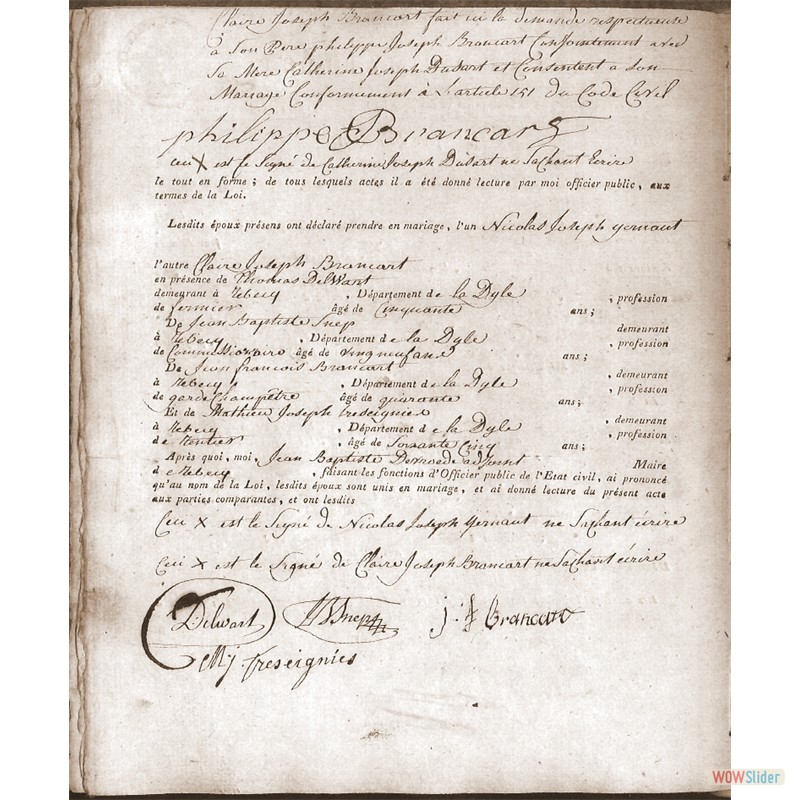 Claire Joseph Brancart fait ici la demande respectueuse
à Son Pere philippe Joseph Brancart Conjointement avec
Sa Mere Catherine Joseph Dusart et Consentent a Son
Mariage Conformement à L'article 151 Du Code Civil
philippe J Brancart
Ceci X est le Signé de Catherine Joseph Dusart ne Sachant Ecrire
le tout en forme ; de tous lesquels actes il a été donné lecture par moi officier public, aux
termes de la Loi.
Lesdits époux présens ont déclaré prendre en mariage, l'un Nicolas Joseph Gernaut
l'autre Claire Joseph Brancart
en présence de Thomas DelWart
demeurant à Rebecq , Département de la Dyle , profession
de fermier âgé de Cinquante ans ;
De Jean Baptiste Snep demeurant
à Rebecq , Département de la Dyle , profession
de Commissionaire âgé de vingneufans ans ;
De Jean francois Brancart , demeurant
à Rebecq , Département de la Dyle , profession
de garde Champêtre âgé de quarante ans ;
Et de Mathieu Joseph treseignies , demeurant
à Rebecq , Département de la Dyle , profession
de Rentier , âgé de Soixante Cinq ans ;
Après quoi, moi, Jean Baptiste adjoint Maire
de Rebecq , faisant les fonctions d'Officier public de l'Etat civil, ai prononcé
qu'au nom de la Loi, lesdits époux sont unis en mariage, et ai donné lecture du présent acte
aux parties comparantes, et ont lesdits
Ceci X est le Signé de Nicolas Joseph Gernaut ne Sachant écrire
Ceci X est le Signé de Claire Joseph Brancart ne Sachant écrire
Delwart JBSnep j: f Brancart
Mj. treseignies
WOWSlider